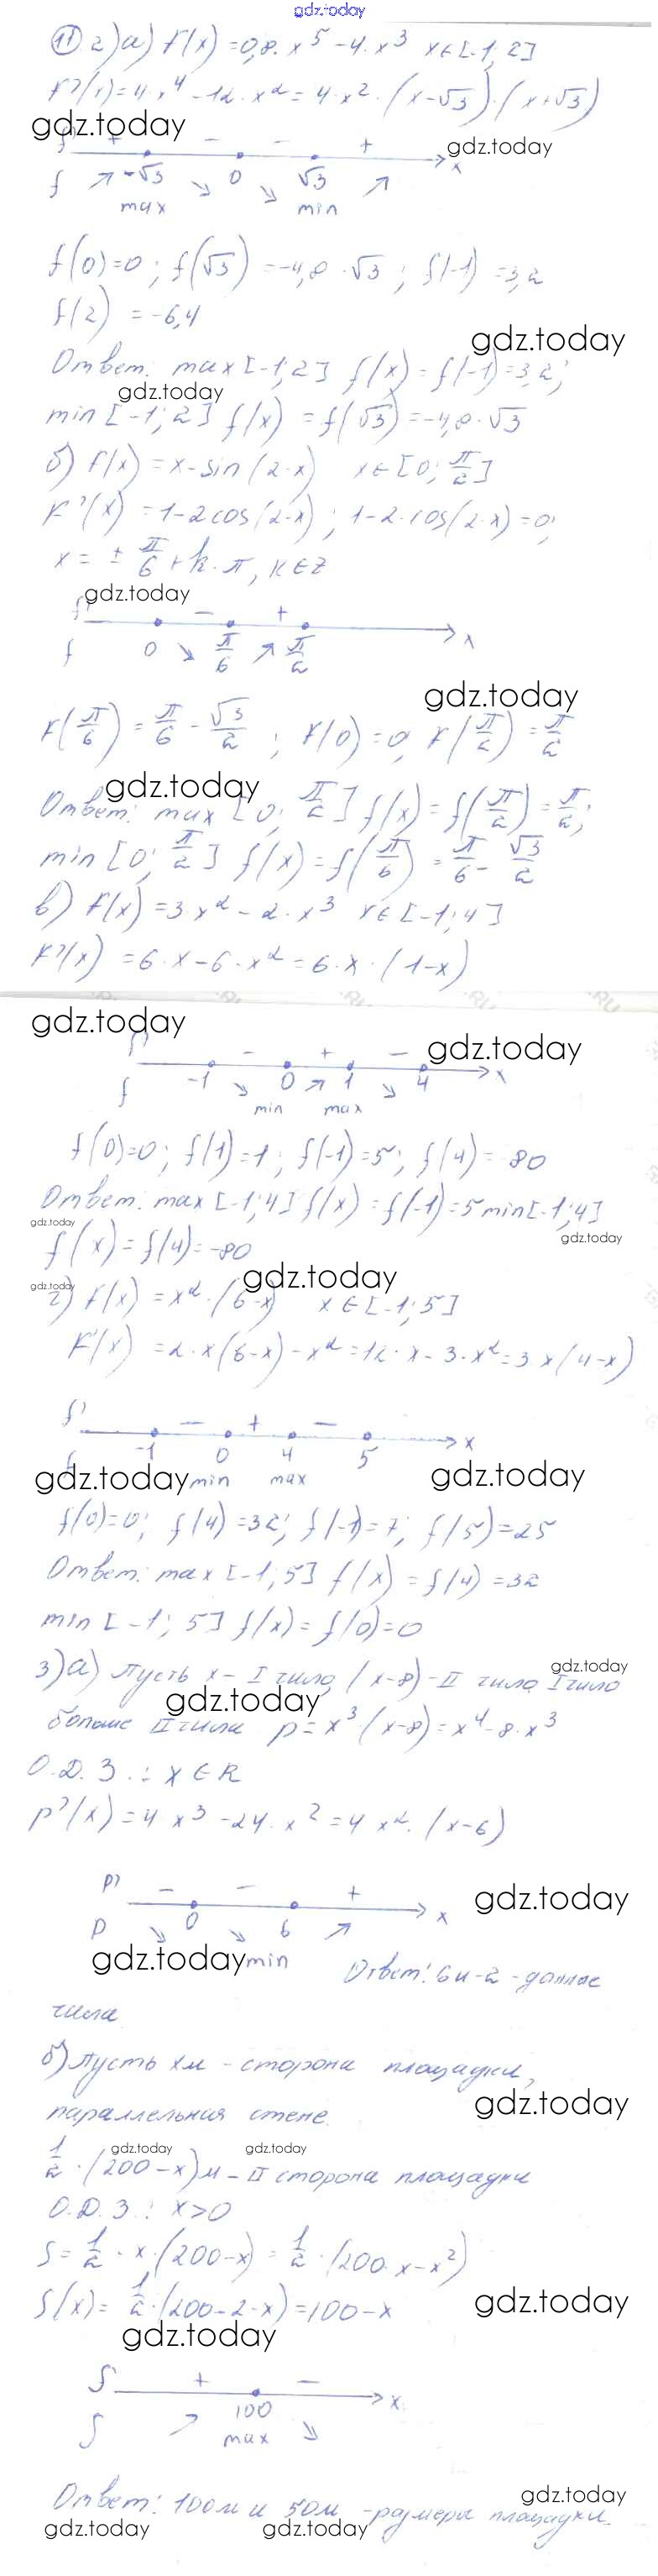 gdz.today
11 2) а) f(x) = 0,8 · x⁵ - 4 · x³ x∈[-1; 2]
f'(x) = 4 · x⁴ - 12 · x² = 4 · x² · (x-√3) · (x+√3)
gdz.today
gdz.today
f' + - - + x
f ↗ -√3 ↘ 0 ↘ √3 ↗
max min
f(0)=0; f(√3) = -4,8 · √3; f(-1) = 3,2
f(2) = -6,4
gdz.today
Ответ: max [-1; 2] f(x) = f(-1) = 3,2;
gdz.today
min [-1; 2] f(x) = f(√3) = -4,8 · √3
б) f(x) = x - sin(2·x) x∈[0; π/2]
f'(x) = 1-2cos(2·x); 1-2·cos(2·x)=0;
x = ± π/6 + k·π, k∈Z
gdz.today
f' - + x
f 0 ↘ π/6 ↗ π/2
gdz.today
f(π/6) = π/6 - √3/2; f(0) = 0, f(π/2) = π/2
gdz.today
Ответ: max [0; π/2] f(x) = f(π/2) = π/2;
min [0; π/2] f(x) = f(π/6) = π/6 - √3/2
в) f(x) = 3·x² - 2·x³ x∈[-1; 4]
f'(x) = 6·x - 6·x² = 6·x·(1-x)
gdz.today
gdz.today
f' - + - x
f -1 ↘ 0 ↗ 1 ↘ 4
min max
f(0)=0; f(1)=1; f(-1)=5; f(4) = -80
Ответ: max [-1; 4] f(x) = f(-1) = 5 min[-1; 4]
gdz.today
gdz.today
f(x) = f(4) = -80
gdz.today
gdz.today
г) f(x) = x²·(6-x) x∈[-1; 5]
f'(x) = 2·x(6-x) - x² = 12·x - 3·x² = 3x(4-x)
f' - + - x
f -1 0 4 5
gdz.today min max gdz.today
f(0)=0; f(4)=32; f(-1)=7; f(5)=25
Ответ: max [-1; 5] f(x) = f(4) = 32
min [-1; 5] f(x) = f(0) = 0
gdz.today
3) а) Пусть x - I число, (x-8) - II число I число
gdz.today
больше II числа p = x³·(x-8) = x⁴ - 8·x³
О.Д.З.: x∈R
p'(x) = 4x³ - 24·x² = 4x²·(x-6)
p' - - + x
gdz.today
p ↘ 0 ↘ 6 ↗
gdz.today min
Ответ: 6 и -2 - данные
числа
б) Пусть x м - сторона площадки,
gdz.today
параллельная стене.
gdz.today gdz.today
1/2 · (200-x) м - II сторона площадки
О.Д.З.: x>0
S = 1/2 · x·(200-x) = 1/2 · (200·x - x²)
gdz.today
S'(x) = 1/2·(200-2·x) = 100-x
gdz.today
S' + - x
100
S ↗ max ↘
gdz.today
Ответ: 100м и 50м - размеры площадки.
gdz.today gdz.today